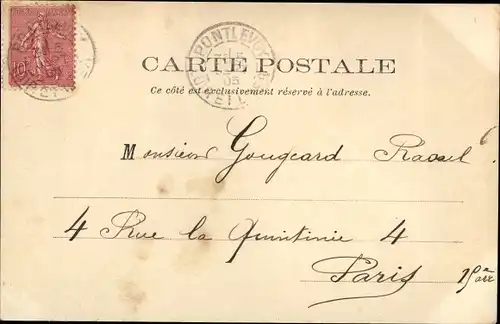 10
PONTLEVOY
05
CARTE POSTALE
Ce côté est exclusivement réservé à l'adresse.
Monsieur Gougeard Raoul
4 Rue la Quintinie 4
Paris 15arr